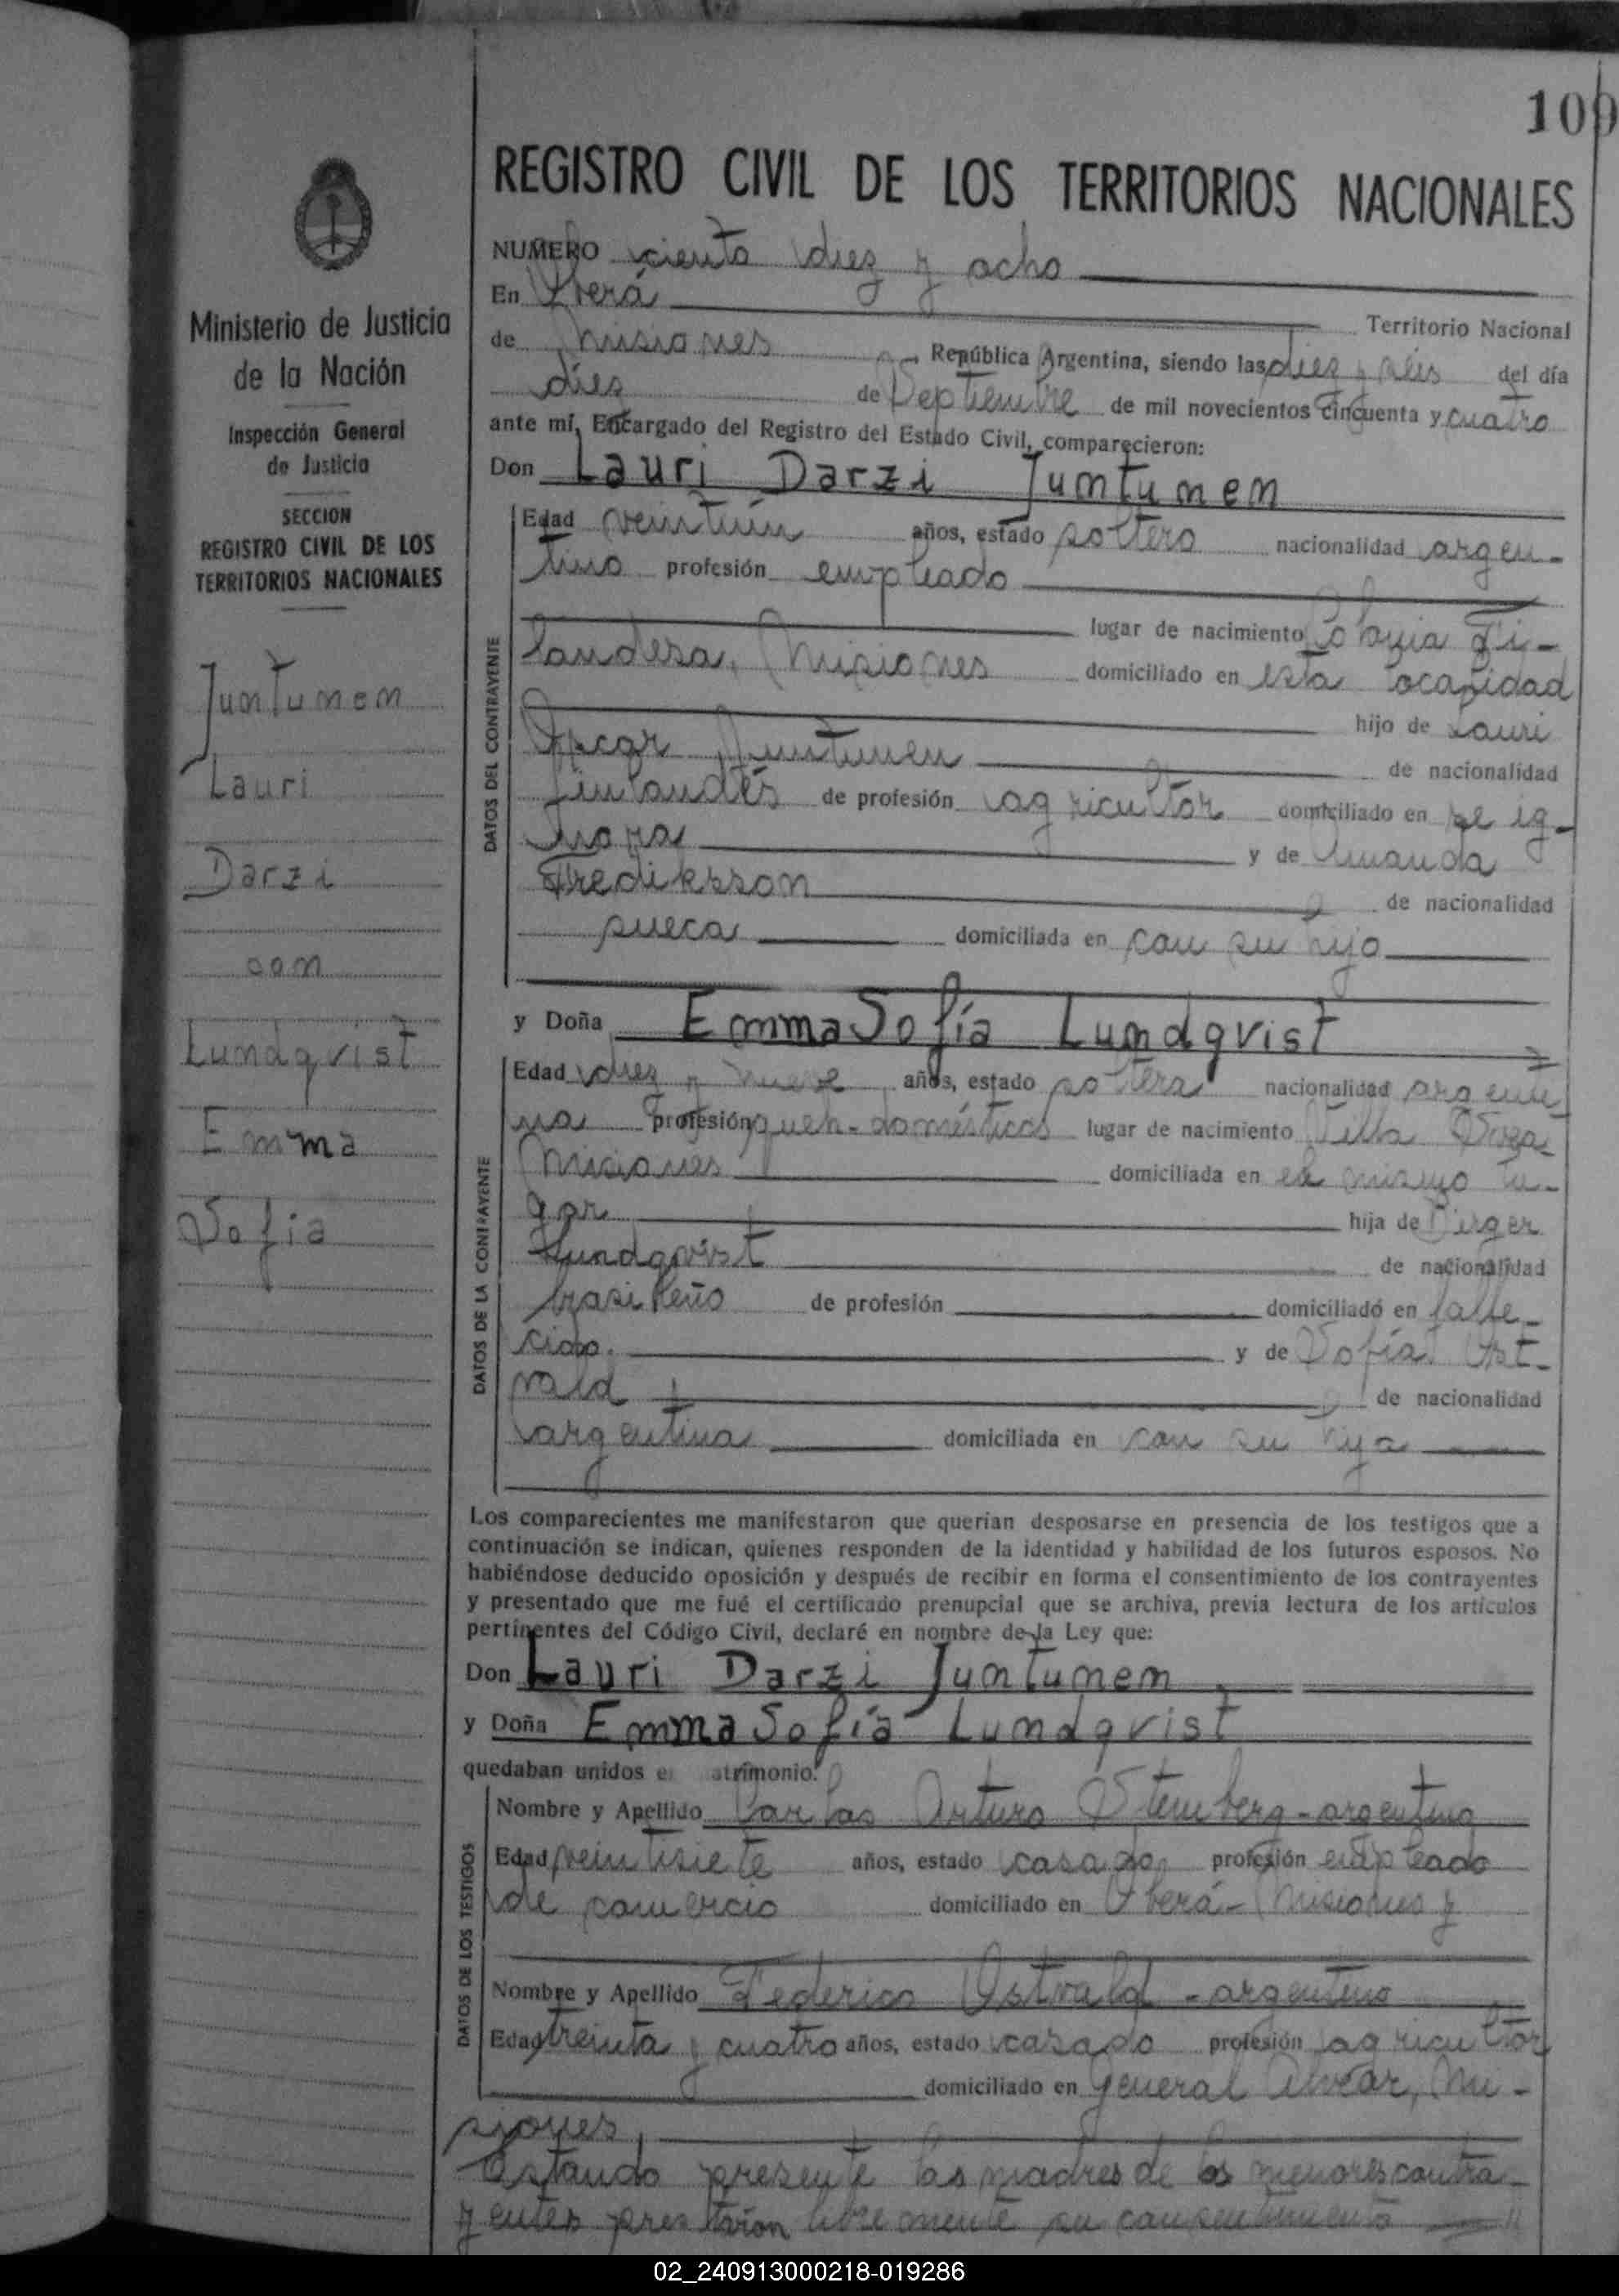 109
REGISTRO CIVIL DE LOS TERRITORIOS NACIONALES
NUMERO ciento diez y ocho
En Oberá Territorio Nacional
de Misiones República Argentina, siendo las diez y seis del día
díes de Septiembre de mil novecientos cincuenta y cuatro
ante mí, Encargado del Registro del Estado Civil, comparecieron:
Don Lauri Darzi Juntunen
Edad veintiún años, estado soltero nacionalidad argen-
tino profesión empleado
lugar de nacimiento Colonia Fi-
landesa, Misiones domiciliado en esta localidad
hijo de Lauri
Oscar Juntunen de nacionalidad
finlandés de profesión agricultor domiciliado en se ig-
nora y de Amanda
Frediksson de nacionalidad
sueca domiciliada en con su hijo
y Doña Emma Sofía Lundqvist
Edad diez y nueve años, estado soltera nacionalidad argenti
na profesión queh-domésticos lugar de nacimiento Villa
Misiones domiciliada en el mismo lu-
gar hija de Birger
Lundqvist de nacionalidad
brasileño de profesión domiciliado en falle-
cido. y de Sofía Ost-
vald de nacionalidad
argentina domiciliada en con su hija
Los comparecientes me manifestaron que querían desposarse en presencia de los testigos que a
continuación se indican, quienes responden de la identidad y habilidad de los futuros esposos. No
habiéndose deducido oposición y después de recibir en forma el consentimiento de los contrayentes
y presentado que me fué el certificado prenupcial que se archiva, previa lectura de los artículos
pertinentes del Código Civil, declaré en nombre de la Ley que:
Don Lauri Darzi Juntunen
y Doña Emma Sofía Lundqvist
quedaban unidos e atrimonio.
Nombre y Apellido Carlos Arturo Stemberg-argentino
Edad veintisiete años, estado casado profesión empleado
de comercio domiciliado en Oberá-Misiones y
Nombre y Apellido Federico Ostvald-argentino
Edad treinta y cuatro años, estado casado profesión agricultor
domiciliado en General Alvear, Mi-
siones,
Estando presente las madres de los menores contra-
yentes prestaron libremente su consentimiento
DATOS DEL CONTRAYENTE
DATOS DE LA CONTRAYENTE
DATOS DE LOS TESTIGOS
Ministerio de Justicia
de la Nación
Inspección General
de Justicia
SECCION
REGISTRO CIVIL DE LOS
TERRITORIOS NACIONALES
Juntunen
Lauri
Darzi
con
Lundqvist
Emma
Sofía
02_240913000218-019286